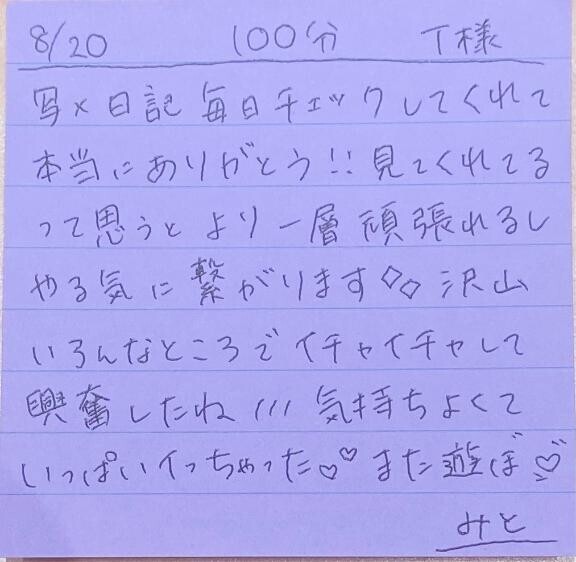 8/20 100分 T様
写メ日記毎日チェックしてくれて
本当にありがとう!!見てくれてる
って思うとより一層頑張れるし
やる気に繋がります♡♡沢山
いろんなところでイチャイチャして
興奮したね///気持ちよくて
いっぱいイっちゃった♡♡また遊ぼ♡
みと